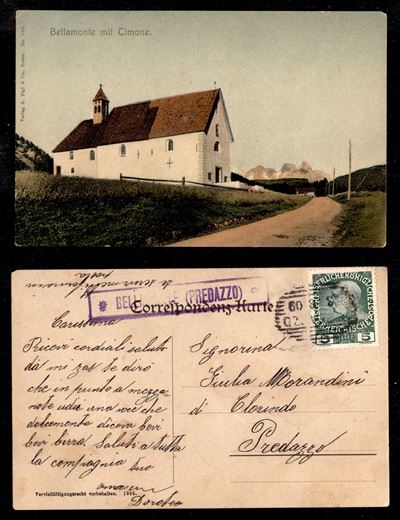 Bellamonte mit Cimone.
Verlag A. Fùgl & Co., Bozen.
* BELL (PREDAZZO) *
Correspondenz-Karte
Carissima
Ricevi cordiali saluti
da mi zas te dirò
che in punto a mezza
note udii una voce che
dolcemente diceva bevi
bevi birra. Saluti a tutta
la compagnia tuo
Doroteo
Signorina
Giulia Morandini
di Clorindo
Predazzo
5 HELLER 5
Vervielfältigungsrecht vorbehalten. 1905.